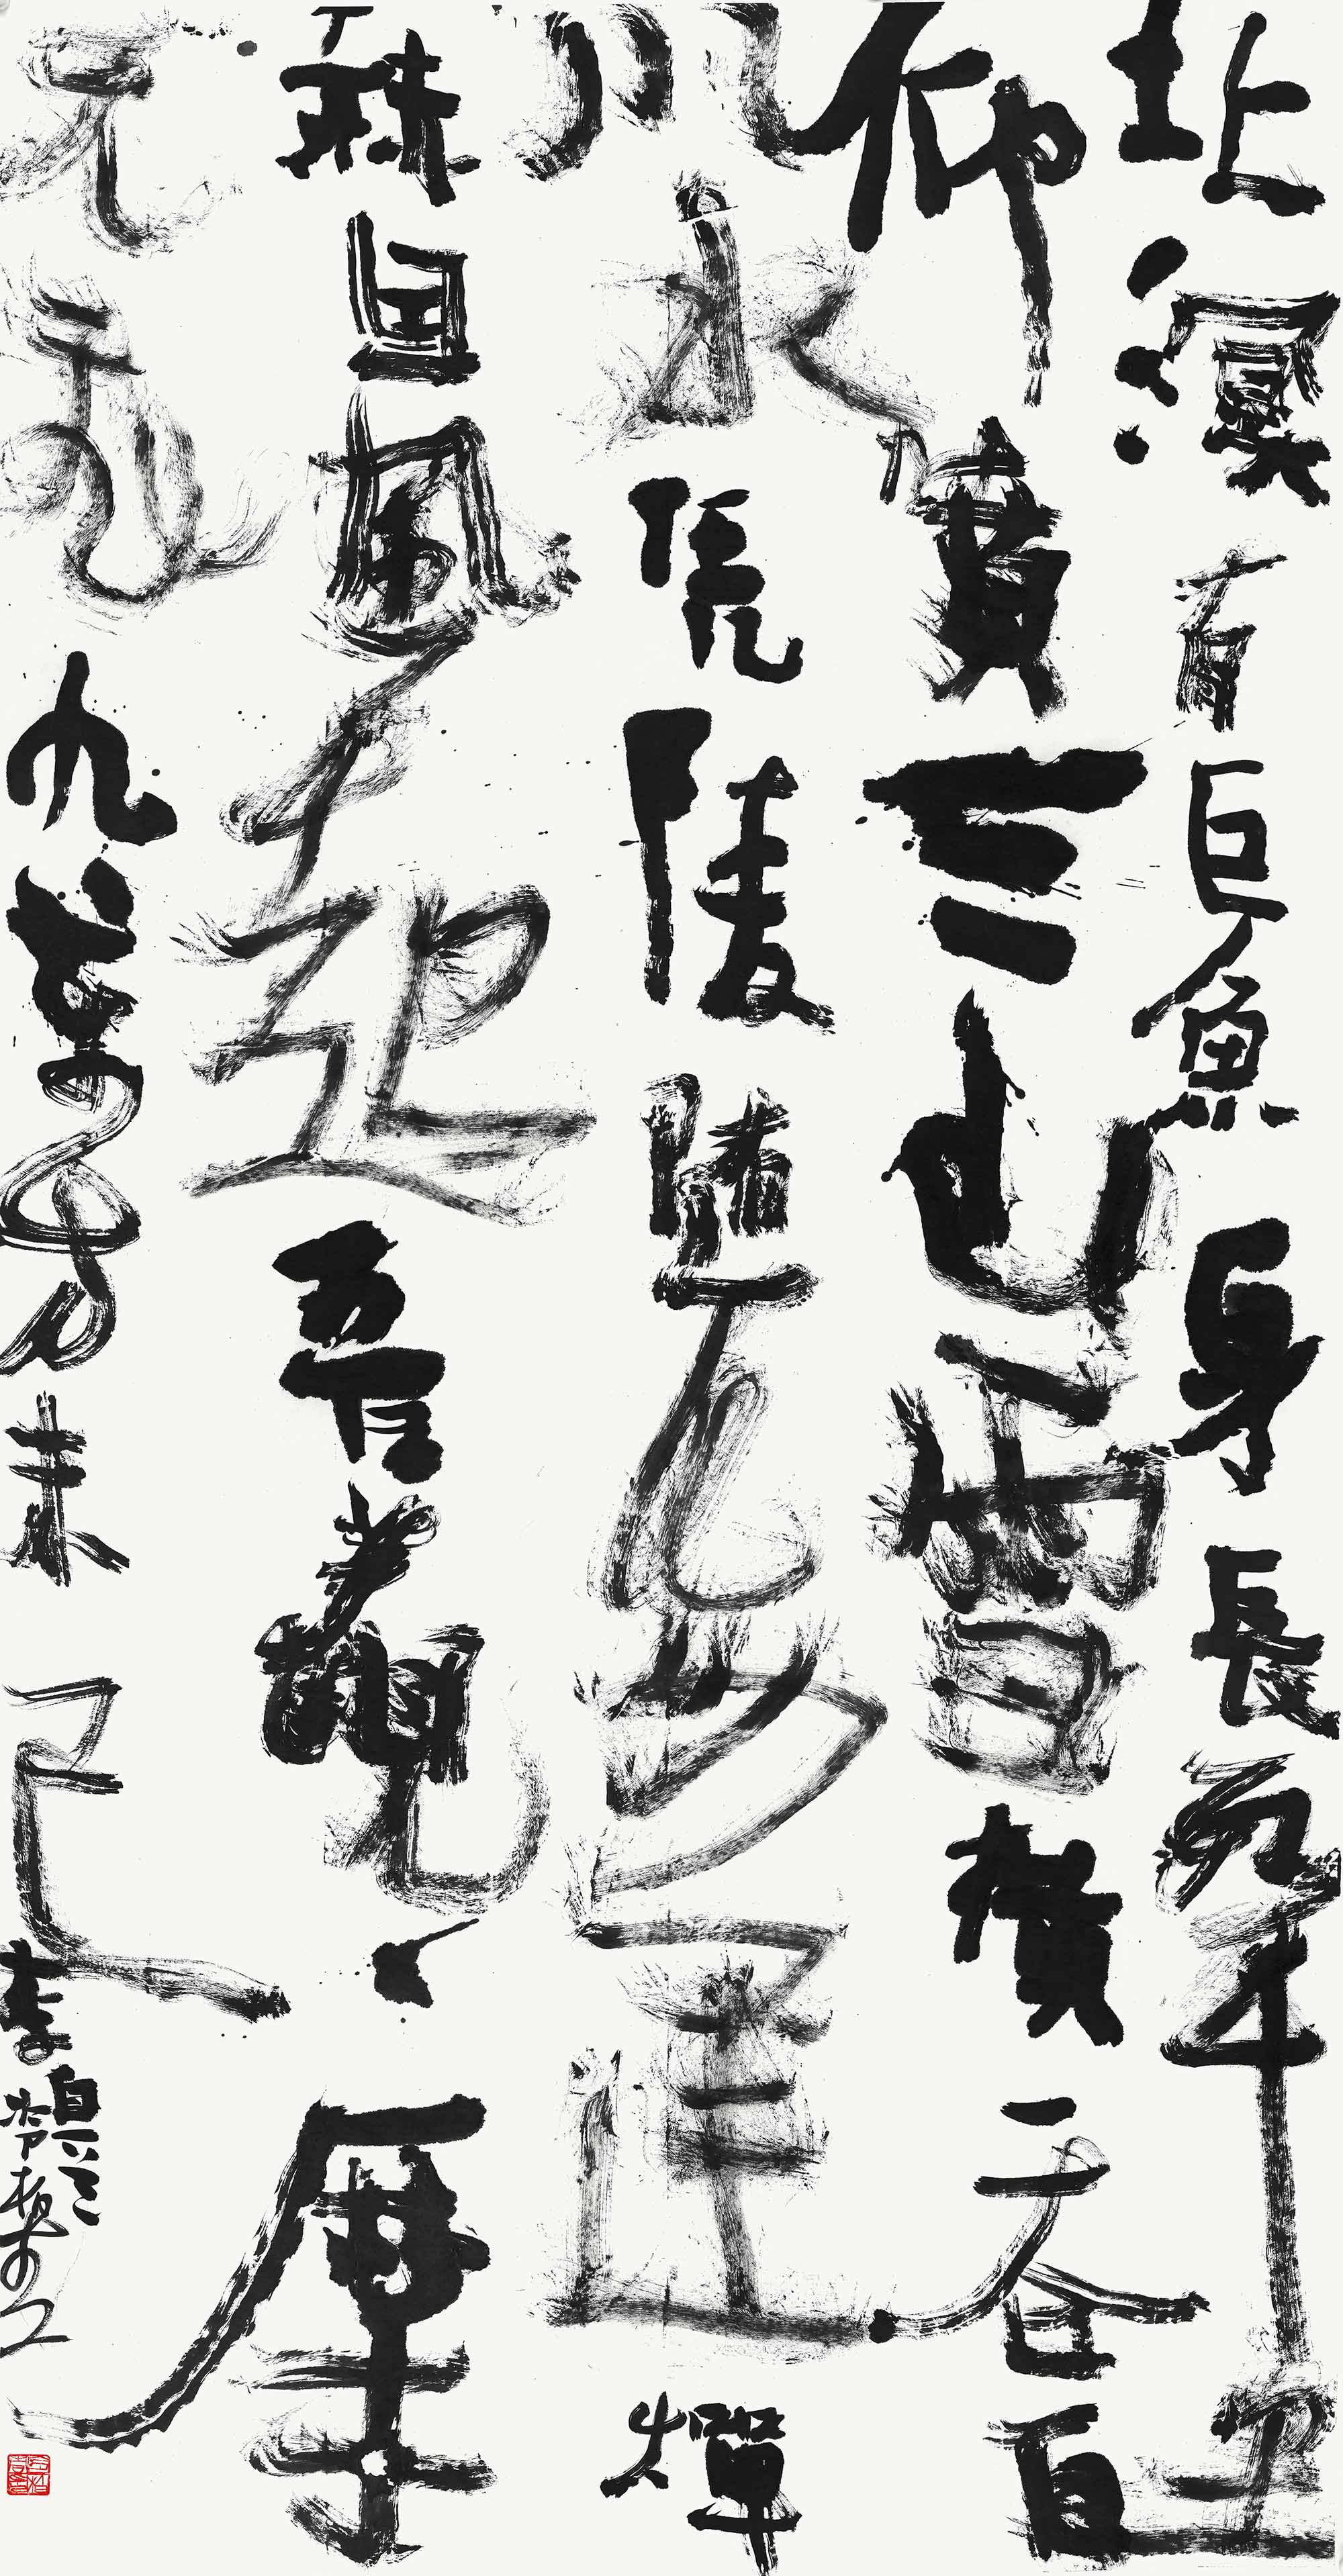 北溟有巨魚身長數千里
仰噴三山雪橫吞百
川水凭陵隨海運燀
赫因風起吾觀摩
天飛九萬方未已